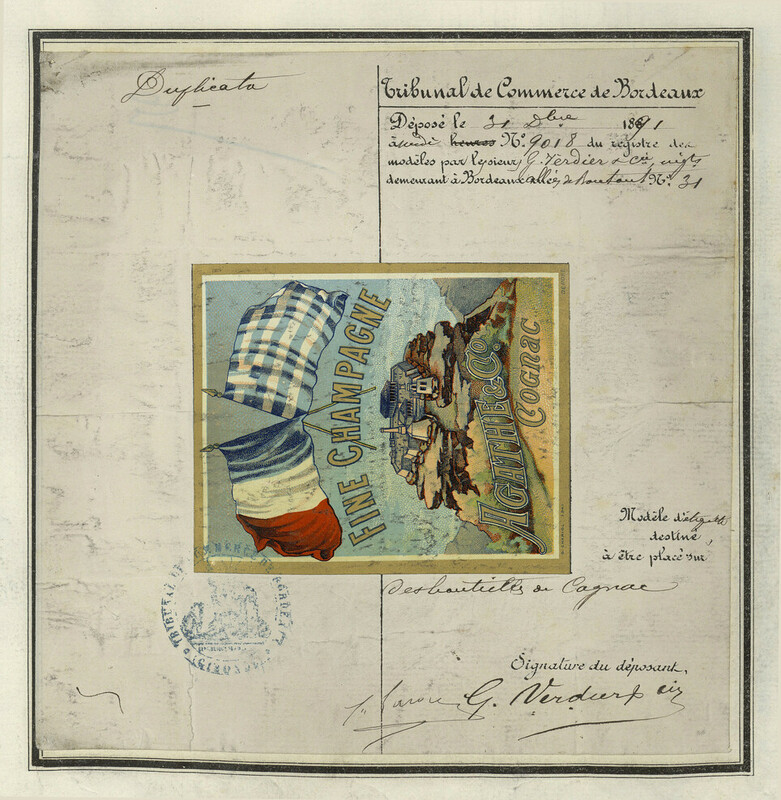 Duplicata
Tribunal de Commerce de Bordeaux
Déposé le 31 Dbre 1891
à midi heures No. 9018 du registre des
modèles par le sieur G. Verdier & Cie, nigts
demeurant à Bordeaux allées de Boutaut No. 31
FINE CHAMPAGNE
AGHTHE & Co.
COGNAC
Modèle d'étiquette
destiné,
à être placé sur
des bouteilles de Cognac
TRIBUNAL DE COMMERCE DE BORDEAUX
Signature du déposant,
G. Verdier & cie